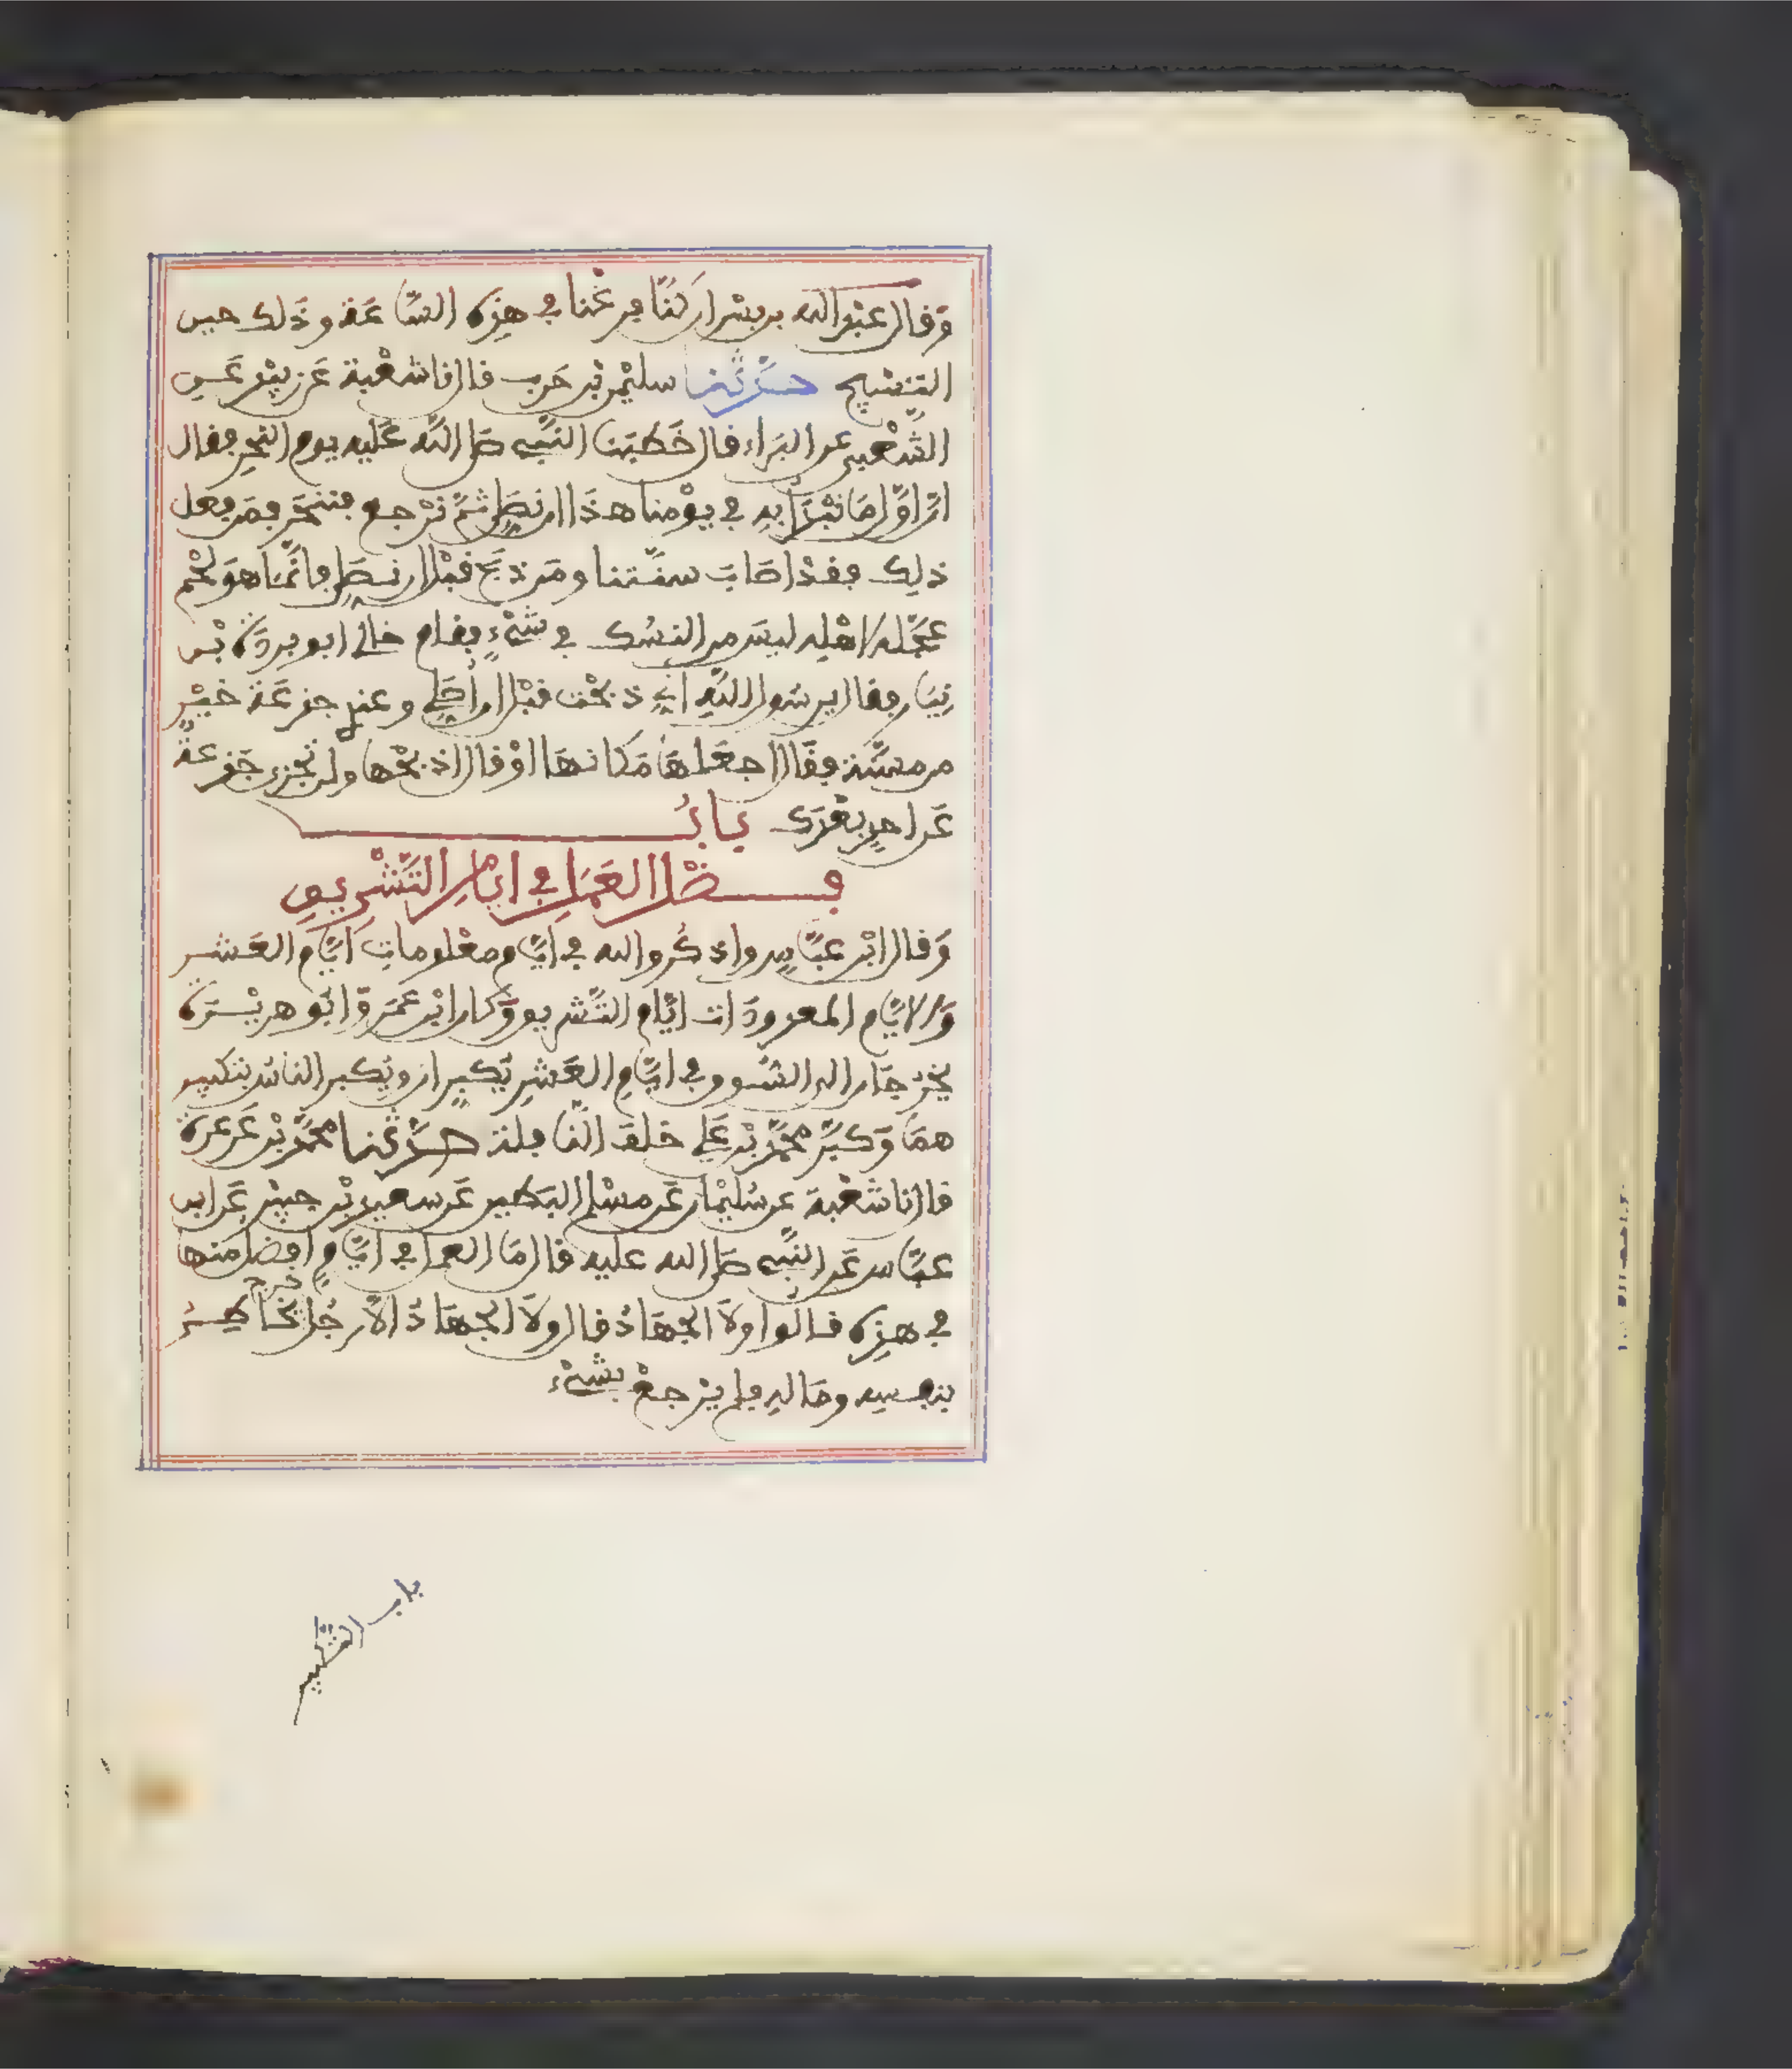 وَقال عبد الله بن بسر ان كنّا فرغنا في هذه السّاعَة وذَلك حين
التسبيح حدثنا سليمن بن حَرب قال نا شعْبة عَن زبيْد عَن
الشَّعْبي عن البَراء قال خَطبَنا النبّي صَلى اللَّه عَليه يوم النحر فقال
انّ اوَّل مَا نبْدَأ به في يوْمنا هذَا ان نصَلي ثمَّ نرْجع فننحَر فمَن فعل
ذلِك فقدْ اصَابَ سنّتنا ومَن ذبَح قبْل ان نصَلي فانّمَا هوَ لحْم
عجَّله لاهْلِه ليسَ من النسُك في شيْءٍ فقام خالي ابو بردَة بْن
نِيَار فقال يرسُول اللَّهِ اني ذبحْت قبْل ان أصَلي وعندي جذعَة خيْر
من مسنَّة فقَال اجعَلهَا مَكانهَا اوْ قال اذبحْها ولن تجْزي جَذعة
عَن احدٍ بعْدَك بَابُ
فضْل العَمَل في ايّامِ التَّشْرِيقِ
وَقال ابْن عبّاسٍ واذكُروا الله في ايّام معْلوماتِ ايّام العَشر
وَالايّام المعدودَات ايّام التَّشريق وَكان ابْن عُمَر وَابُو هريْرَة
يخْرجَان الى السُّوق في ايّامِ العَشرِ يُكبرَان ويُكبر الناسُ بتكبير
همَا وَكبَّر محمَّد بْن عَلي خلفَ النَّافلة حدَّثنا محمَّد بْن عَرعرَة
قال نا شعْبة عن سُليْمان عَن مسْلم البَطين عَن سعيد بْن جبيْر عَن ابن
عبّاس عَن النبّي صَلى الله عليه قال مَا العمل في ايّامٍ افضل منها
في هذِه قالُوا ولاَ الجهَادُ قال ولاَ الجهَادُ الاَّ رجُل خرج يخَاطِرُ
بنفسِه ومَالهِ فلم يرْجعْ بشيْء
باب التكبير